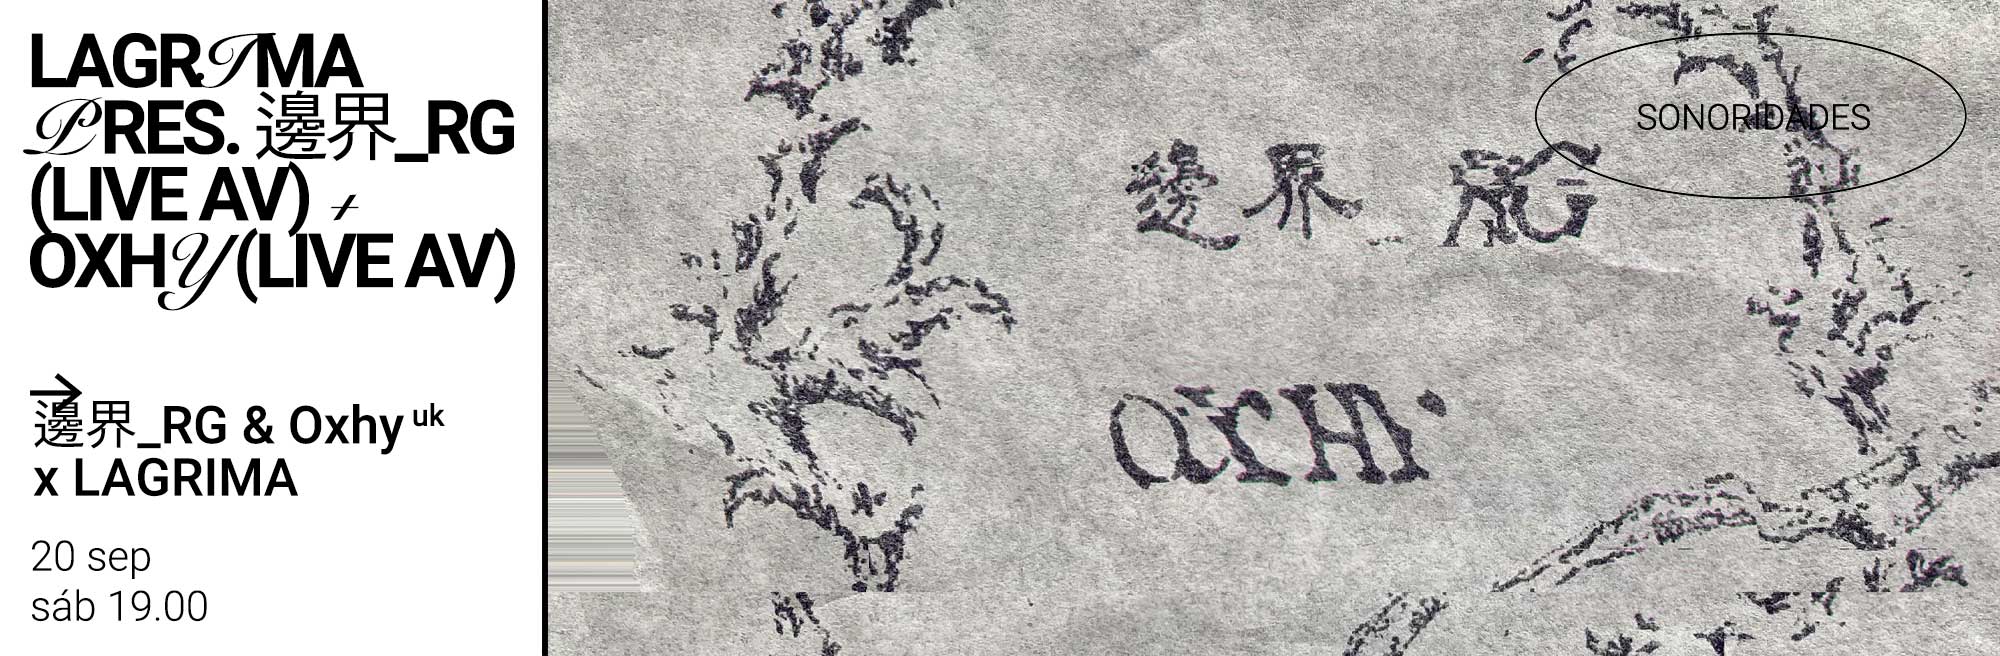 LAGRIMA
PRES. 邊界_RG
(LIVE AV) +
OXHY (LIVE AV)
→
邊界_RG & Oxhy uk
x LAGRIMA
20 sep
sáb 19.00
SONORIDADES
邊界_RG